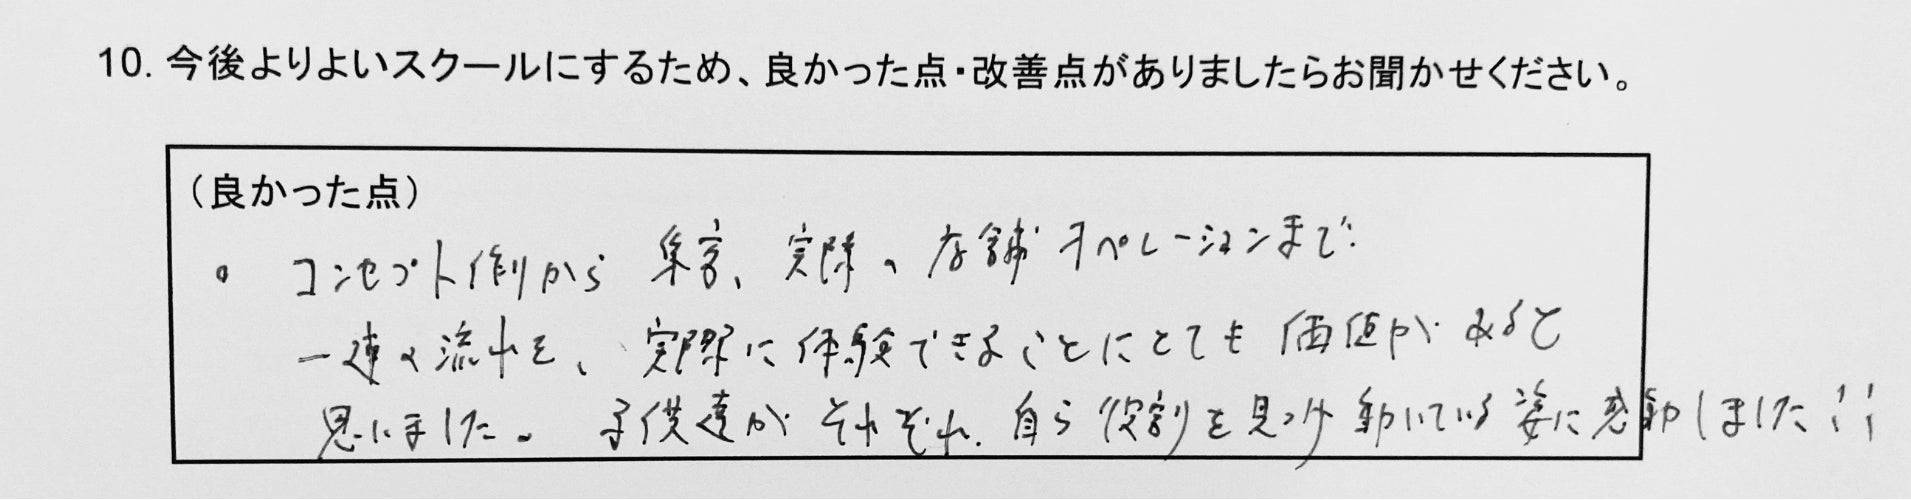 10. 今後よりよいスクールにするため、良かった点・改善点がありましたらお聞かせください。
（良かった点）
。コンセプト作りから 集客、実際の店舗オペレーションまで
一連の流れを、実際に体験できることにとても価値があると
思いました。子供達がそれぞれ、自ら役割を見つけ動いている姿に感動しました!!